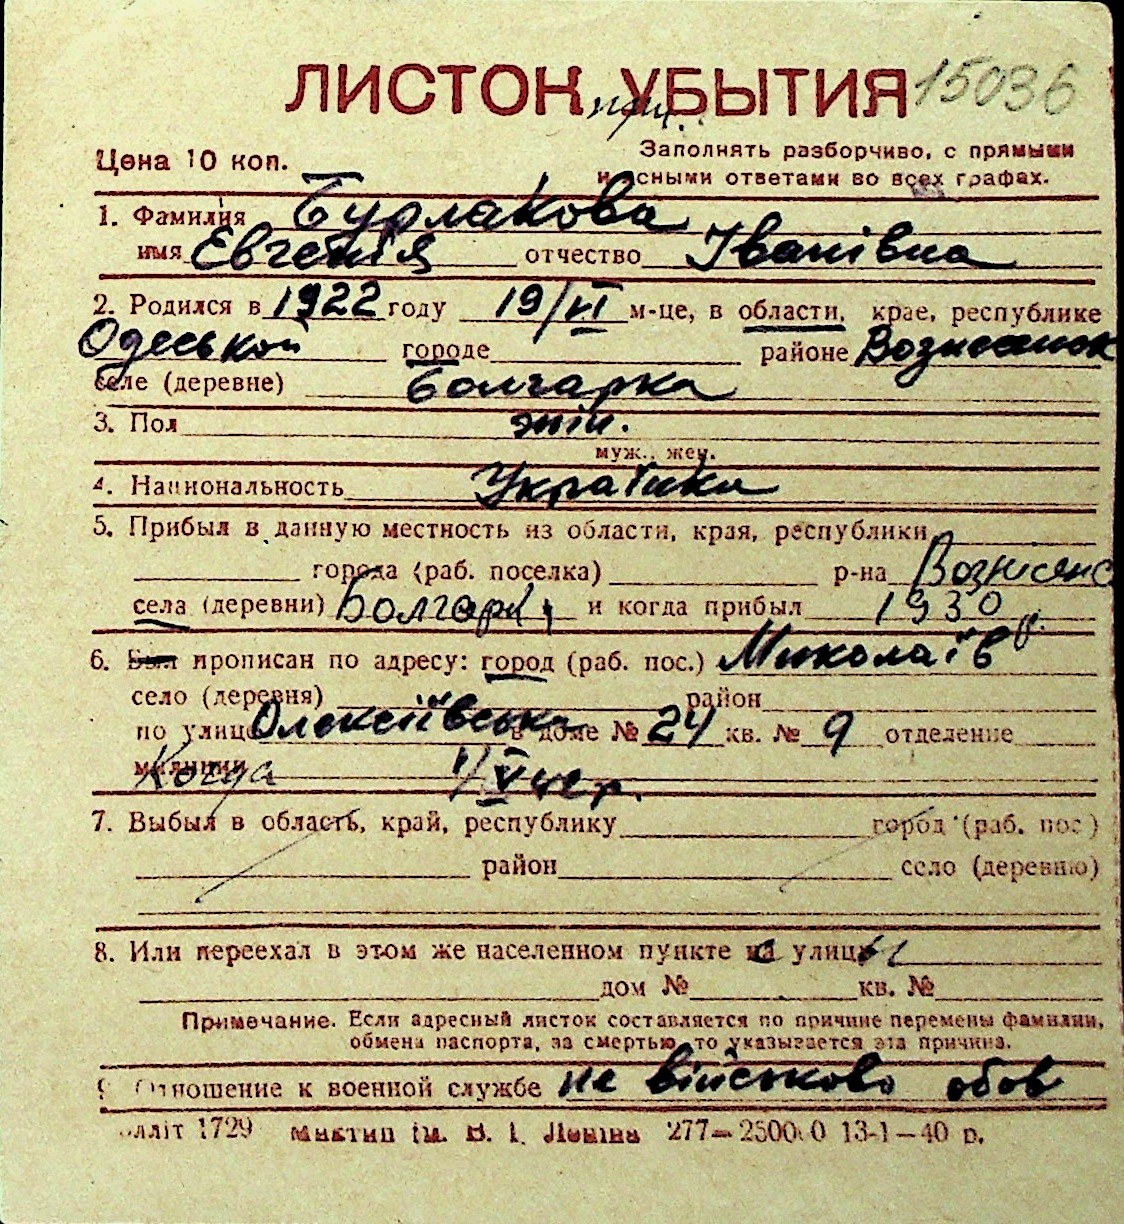 ЛИСТОК УБЫТИЯ 15036
при.
Цена 10 коп.
Заполнять разборчиво, с прямыми
и ясными ответами во всех графах.
1. Фамилия Бурлакова
имя Евгенія отчество Іванівна
2. Родился в 1922 году 19/VI м-це, в области, крае, республике
Одеськой городе районе Вознесенск
селе (деревне) Болгарка
3. Пол жін.
муж., жен.
4. Национальность Українка
5. Прибыл в данную местность из области, края, республики
города (раб. поселка) р-на Вознесенс
села (деревни) Болгарк и когда прибыл 1930 р.
6. Был прописан по адресу: город (раб. пос.) Миколаїв
село (деревня) район
по улице Олексіївська в доме № 24 кв. № 9 отделение
милиции Когда 1/V
7. Выбыл в область, край, республику город (раб. пос.)
район село (деревню)
8. Или переехал в этом же населенном пункте с улицы
дом № кв. №
Примечание. Если адресный листок составляется по причине перемены фамилии,
обмена паспорта, за смертью, то указывается эта причина.
9. Отношение к военной службе не військово обов
1729 ім. В. І. Леніна 277—25000 13-1—40 р.